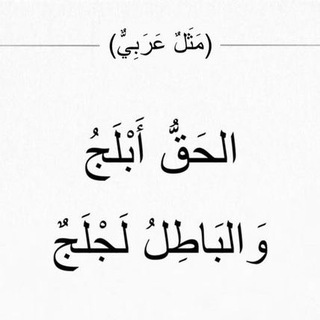 (مَثَلٌ عَرَبِيٌّ)
الحَقُّ أَبْلَجُ
وَالبَاطِلُ لَجْلَجٌ